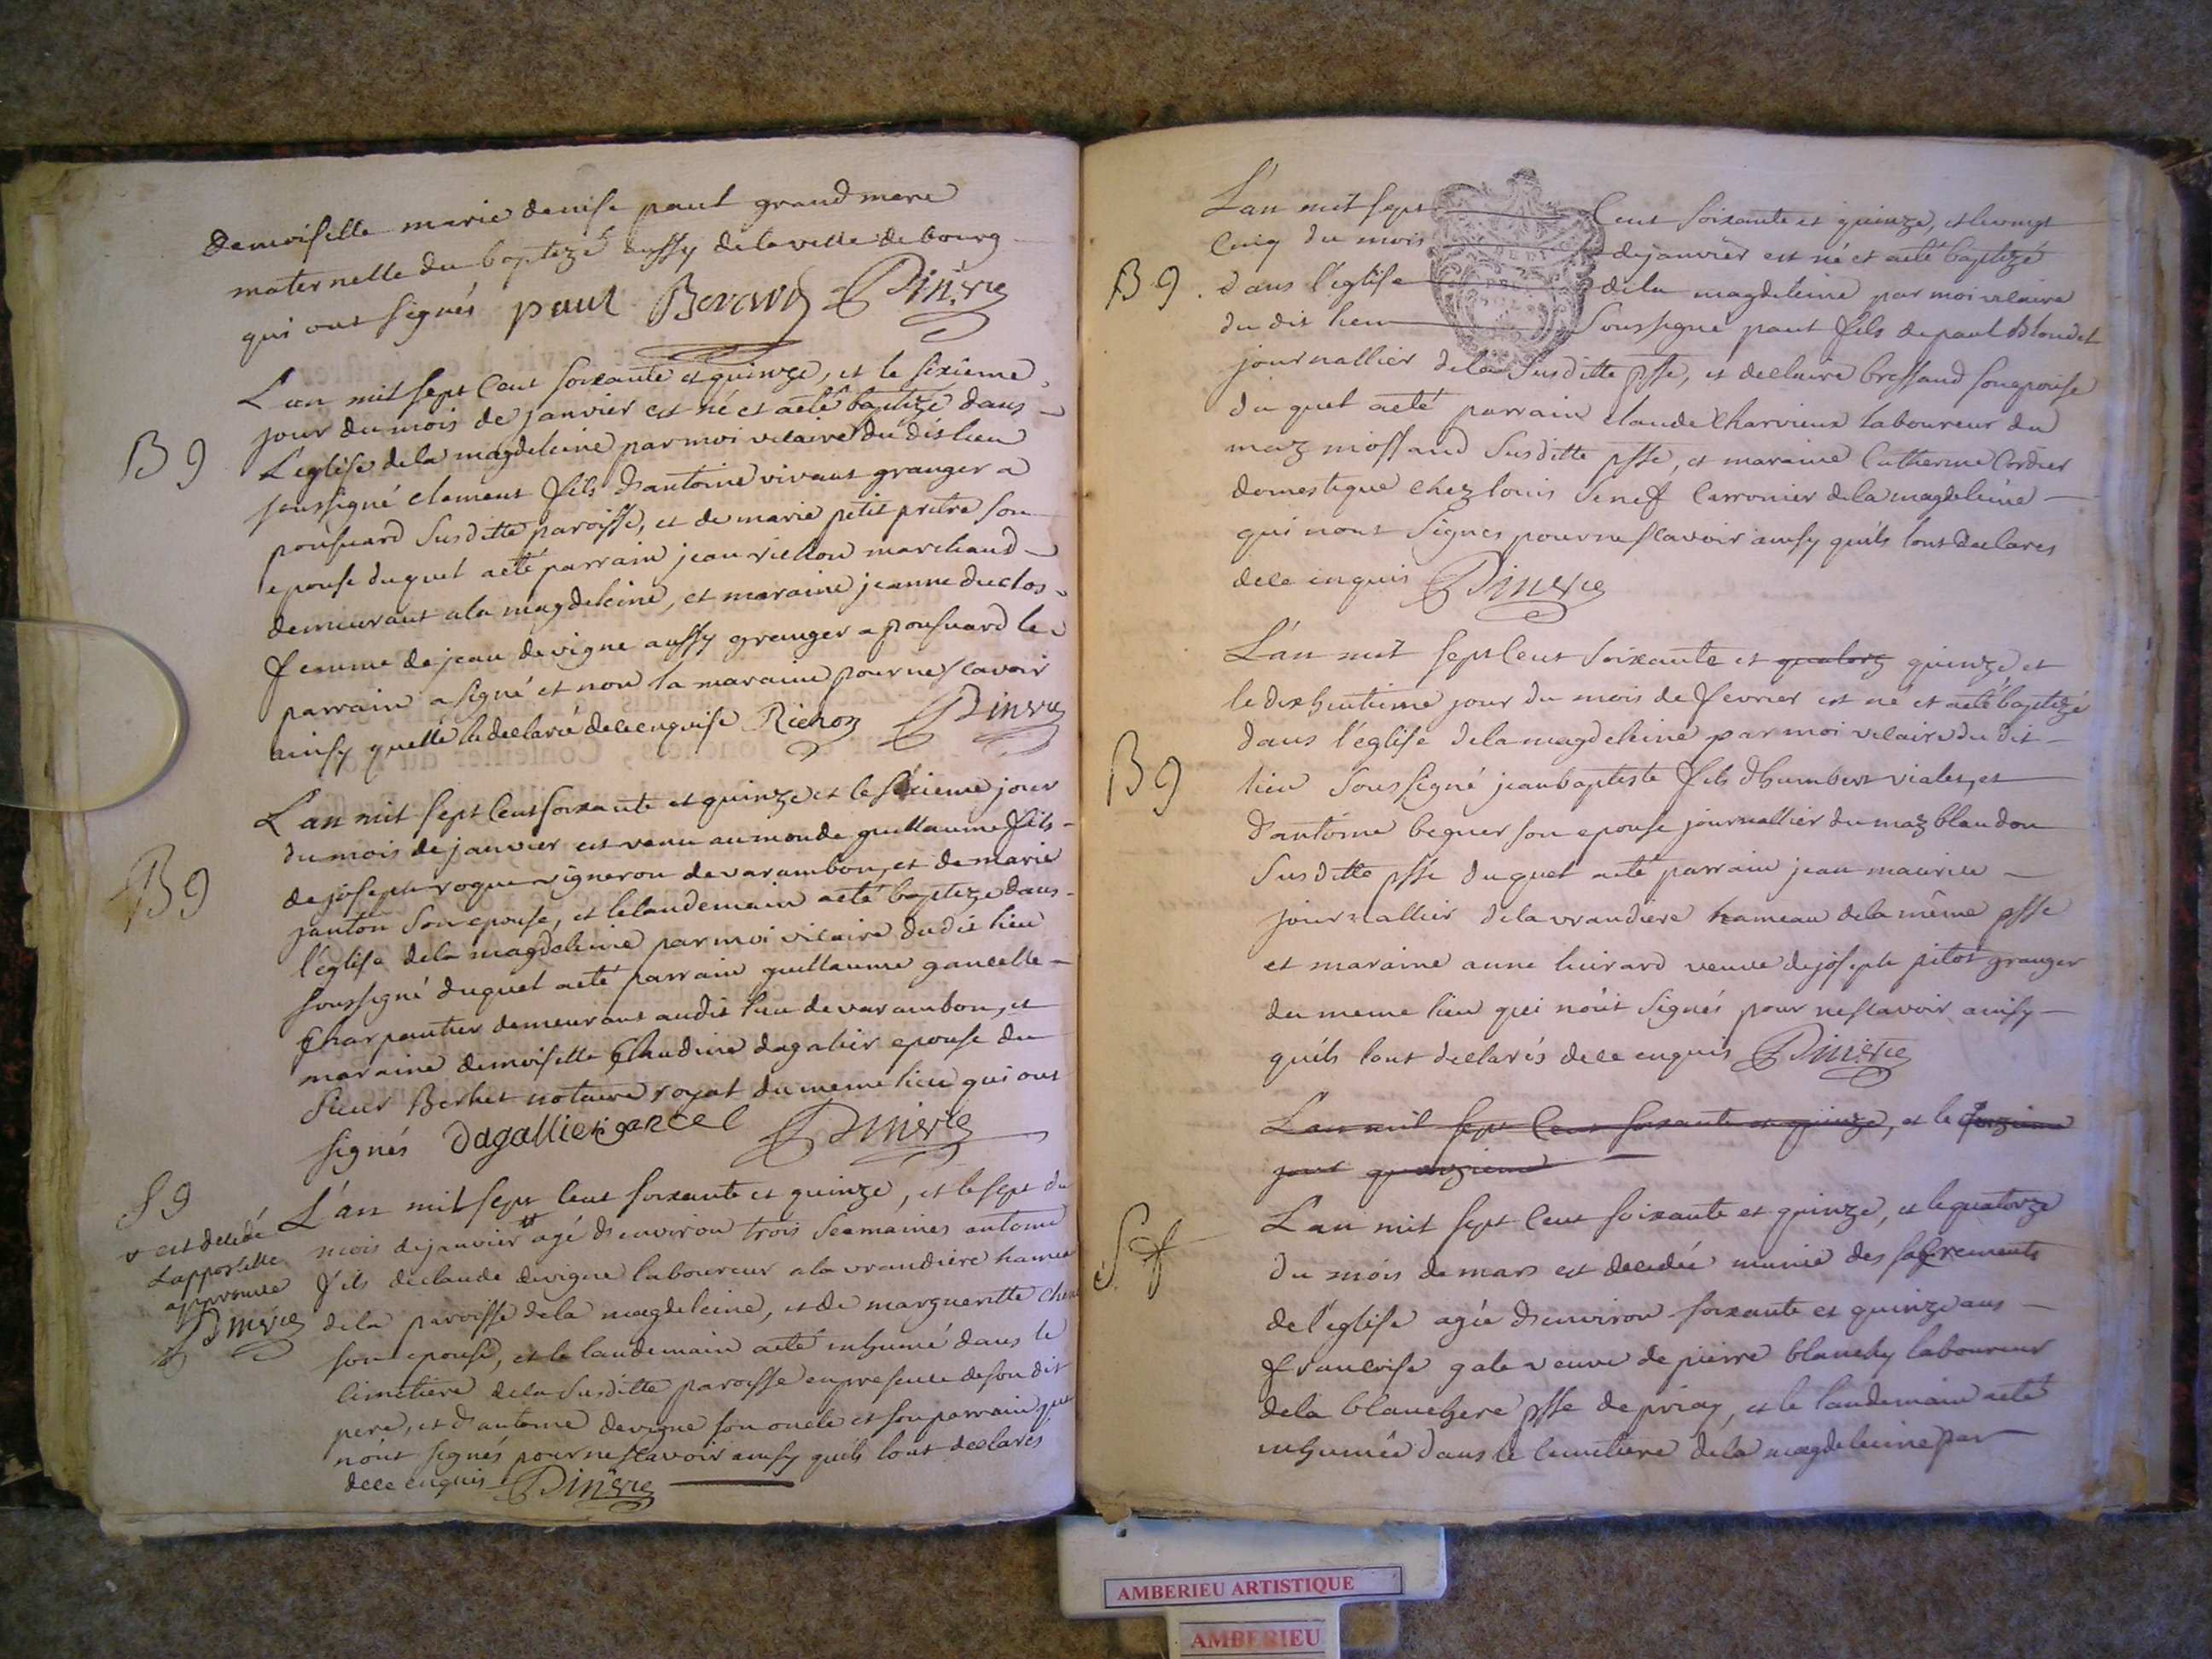 demoiselle marie denise paul grand mere
maternelle du baptizé aussy de la ville de bourg
qui ont signés paul Berard Dinvre
B g
L'an mil sept cent soixante et quinze, et le sixieme
jour du mois de janvier est né et aété baptizé dans
l'eglise dela magdeleine par moi vicaire du dis lieu
soussigné clement fils d'antoine vivant granger a
ponsuard susditte paroisse, et de marie petit pretre son
epouse duquel aété parrain jean richon marchand
demeurant ala magdeleine, et maraine jeanne duclos
femme de jean devigne aussy granger a ponsuard le
parrain a signé et non la maraine pour ne scavoir
ainsy quelle la declaré dece enquise Richon
B g
L'an mil sept cent soixante et quinze et le sixieme jour
du mois de janvier est venu au monde guillaume fils
de joseph roque vigneron de varambon, et de marie
janton son epouse, et le landemain aété baptizé dans
l'églisе dela magdeleine par moi vicaire dudit lieu
soussigné duquel aété parrain guillaume gancelle
charpantier demeurant audit lieu de varambon, et
maraine demoiselle claudine dagalier epouse du
sieur Berliet notaire royal du meme lieu qui ont
signés dagallier gancel
S g
v est décédé
L'appostille
approuvée
L'an mil sept cent soixante et quinze, et le sept du
mois de janvier agé d'environ trois seamaines antoine
fils de claude devigne laboureur a la vrandiere hameau
dela paroisse dela magdeleine, et de margueritte
son epouse, et le landemain aété inhumé dans le
cimetiere dela susditte paroisse en presence de son dit
pere, et d'antoine devigne son oncle et son parrain qui
n'ont signés pour ne scavoir ainsy quils l'ont declarés
dece enquis
L'an mil sept cent soixante et quinze, et le vingt
B g.
cinq du mois de janvier est né et aété baptizé
dans l'église dela magdeleine par moi vicaire
du dit lieu soussigné paul fils de paul Blondet
journallier dela susditte psse, et de claire bressand son epouse
du quel aété parrain claude Charvieux laboureur du
maz miossand susditte psse, et maraine Catherine Cordier
domestique chez louis senef Carronier dela magdeleine
qui n'ont signés pour ne scavoir ainsy quils l'ont declarés
dece enquis
B g
L'an mil sept cent soixante et quatorz quinze, et
le dixhuitieme jour du mois de fevrier est né et aété baptizé
dans l'église dela magdeleine par moi vicaire du dit
lieu soussigné jean baptiste fils d'humbert vialet, et
d'antoine beguer son epouse journallier du maz blandon
susditte psse duquel aété parrain jean maurice
journallier dela vrandiere hameau dela même psse
et maraine anne huirard veuve de joseph pitot granger
du meme lieu qui n'ont signés pour ne scavoir ainsy
quils l'ont declarés dece enquis
L'an mil sept cent soixante et quinze, et le
jour quinzieme
S. f
L'an mil sept cent soixante et quinze, et le quatorze
du mois de mars est décédée munie des sacrements
de l'église agée d'environ soixante et quinze ans
francoise gale veuve de pierre blanchy laboureur
dela blanchere psse de priay, et le landemain aété
inhumée dans le cimetiere dela magdeleine par
AMBERIEU ARTISTIQUE
AMBERIEU